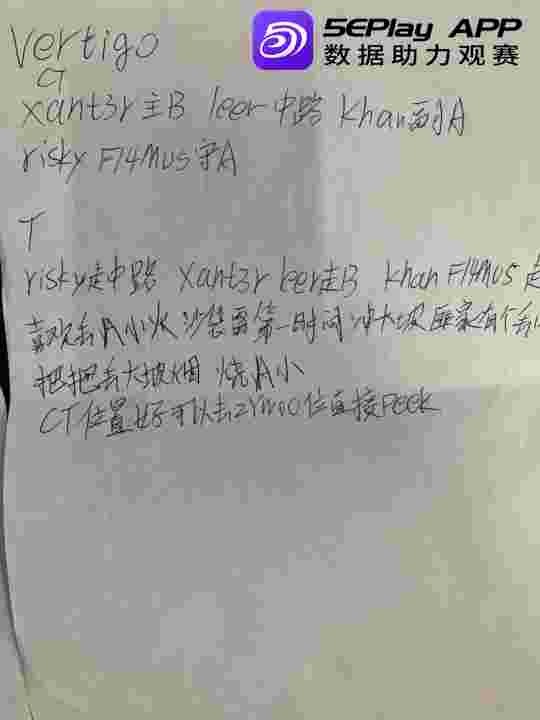 5EPlay APP
数据助力观赛
Vertigo
CT
xant3r 主B leer 中路 Khan 副A
risky Fl4Mus 守A
T
risky走中路 xant3r leer走B Khan Fl4Mus 走
喜欢丢A小火 沙袋雷 第一时间冲大坡 匪家有个
把把丢大坡烟 烧A小
CT位置好可以去ZYWOO位直接Peek